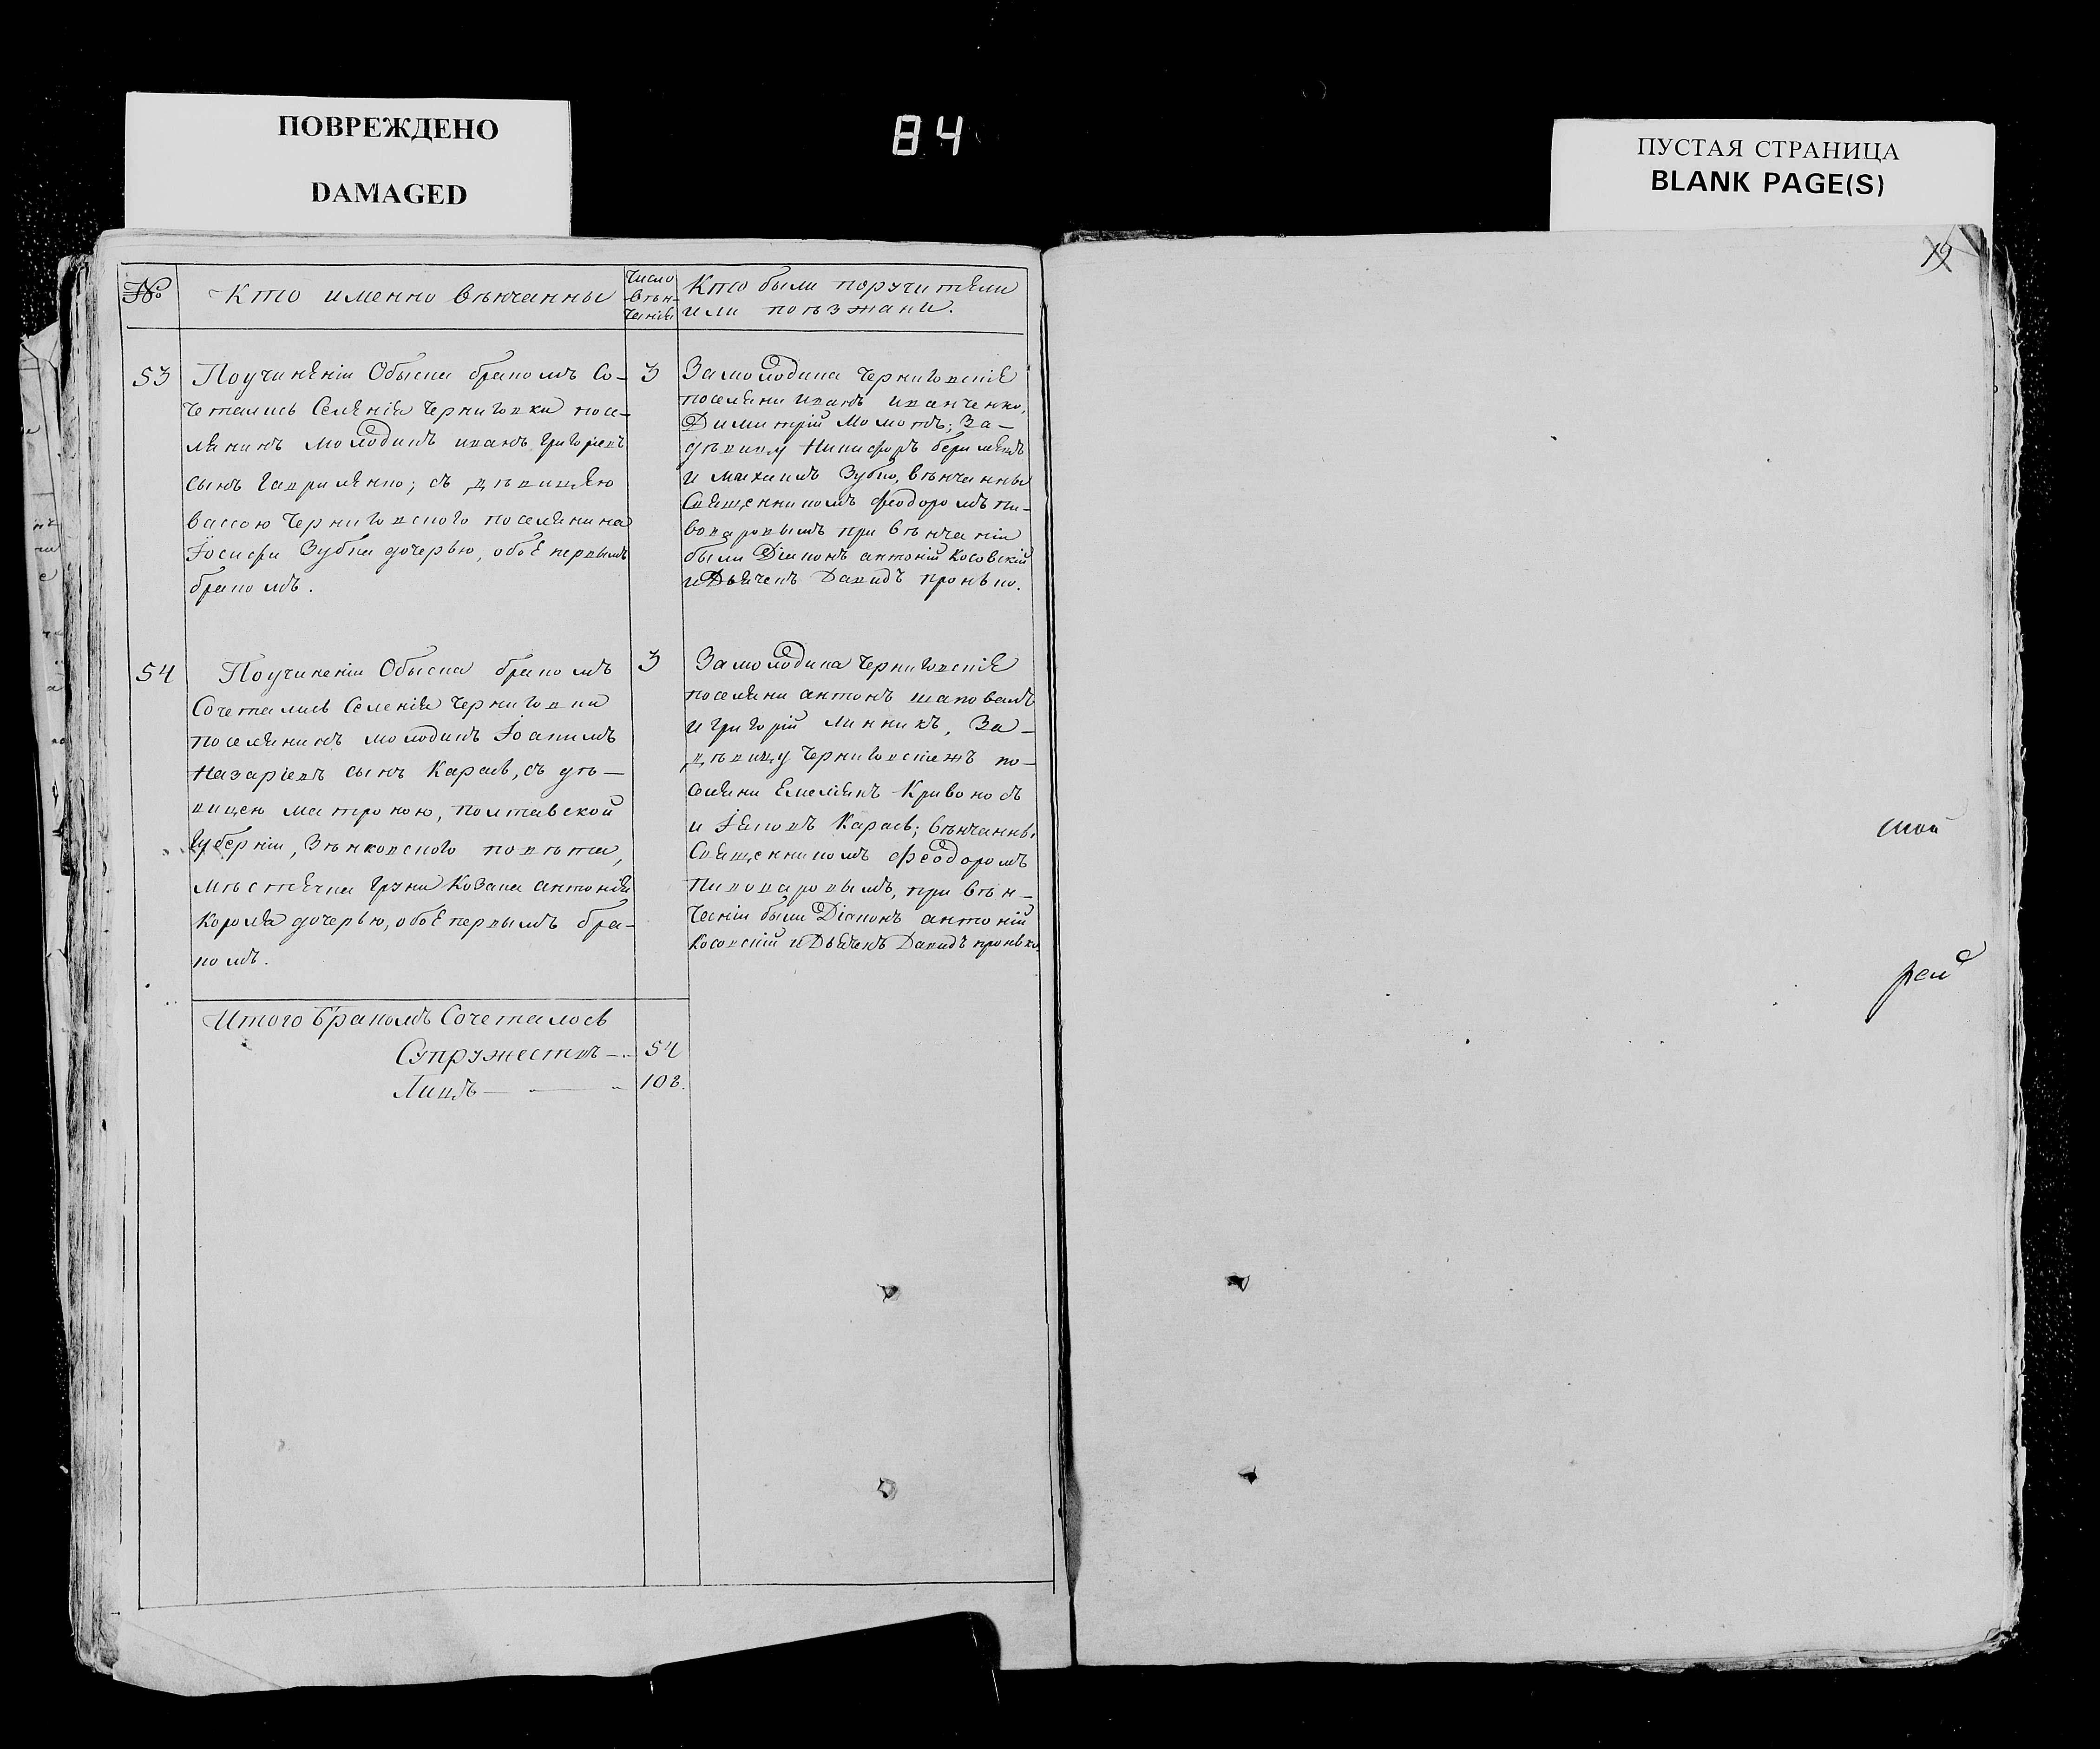 ПОВРЕЖДЕНО
DAMAGED
84
ПУСТАЯ СТРАНИЦА
BLANK PAGE(S)
19
№
Кто именно вѣнчанны
Число
вѣн-
чанія
Кто были поручители
или поѣзжани.
53
Поучинѣніи Обыска бракомъ Со-
четались Селѣнія Черниговки посе-
лянинъ молодикъ иванъ григорiевъ
сынъ гавриленко; съ дѣвицею
вассою Черниговского поселянина
Іосифа Зубка дочерью, обоё первымъ
бракомъ.
3
Замолодика Черниговскіе
поселяни иванъ иванченко,
Димитрій момотъ; За-
дѣвицу Никифоръ
и михаилъ Зубко, вѣнчанны
Священникомъ феодоромъ пи-
воваровымъ при вѣнчаніи
были Діаконъ антоній Косовскій
и Дьячекъ Давидъ пронько.
54
Поучинении Обыска бракомъ
Сочетались Селенія Черниговки
поселянинъ молодикъ Іоакимъ
Назаріевъ сынъ Карась, съ дѣ-
вицею матроною, полтавской
губерніи, Зѣнковского повѣта,
мѣстечка груни Козака антонія
Короля дочерью, обоё первымъ бра-
комъ.
3
Замолодика Черниговскіе
поселяни антонъ шаповалъ
и григорій линникъ, За-
дѣвицу Черниговскіежъ по-
селяни Емеліянъ Кривоносъ
и Іяковъ Карась; вѣнчанны
Священникомъ феодоромъ
Пивоваровымъ, при вѣн-
чаніи были Діаконъ антоній
Косовскій и Дьячекъ Давидъ пронько.
Итого бракомъ Сочеталось
Супружествъ — 54
Лицъ — 108.